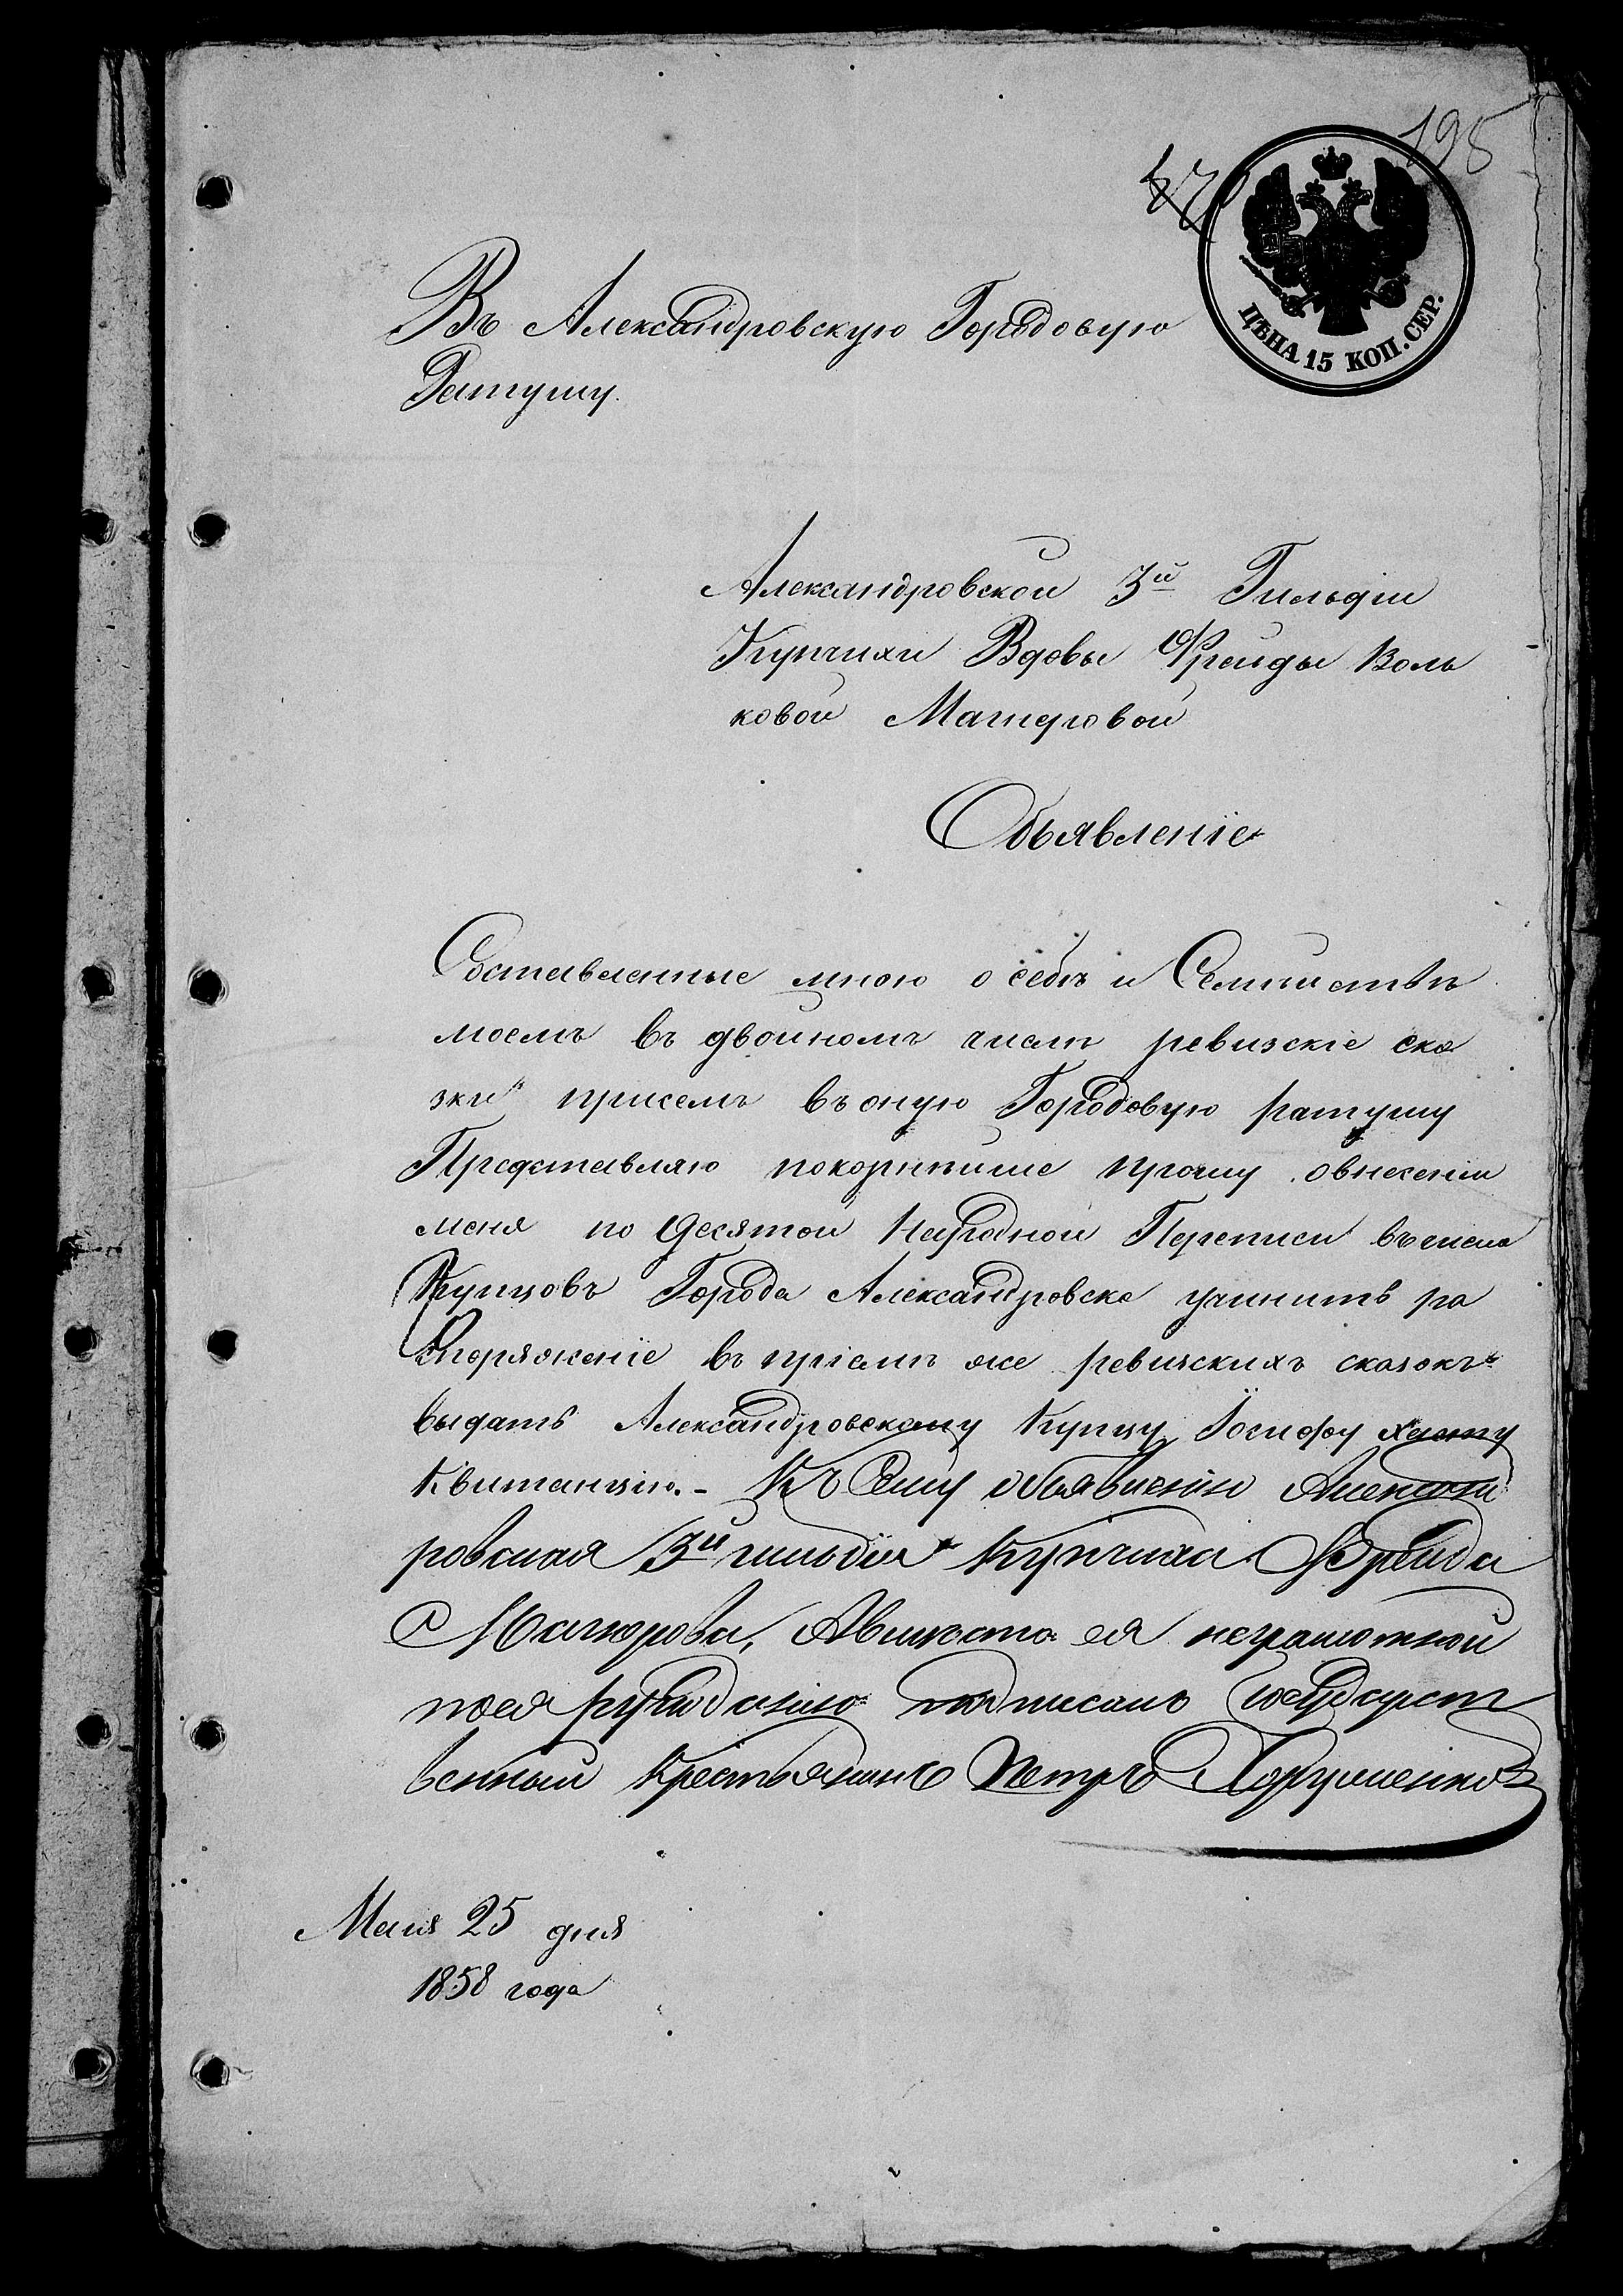 195
ЦѢНА 15 КОП. СЕР.
Въ Александровскую Городовую
Ратушу.
Александровской 3й Гильдіи
Купчихи Вдовы Фрейды Воль
ковой Магеровой
Объявленіе
Составленные мною о себѣ и Семействѣ
моемъ въ двойномъ числѣ ревизскіе ска
зки присемъ въ оную Городовую ратушу
Представляю покорнѣйше прошу овнесеніи
меня по десятой Народной Переписи въчисло
Купцовъ Города Александровска учинить ра
споряженіе въ пріемѣ же ревизскихъ сказокъ
выдать Александровскому Купцу Іосифу
Квитанцію. - Къ Сему объявленію Александ
ровская 3й гильдіи Купчиха Фрейда
Магерова, Авмѣсто ея неграмотной
поея рукоданію подписалъ Государст
венный крестьянинъ Петръ Хорушенко
Мая 25 дня
1858 года